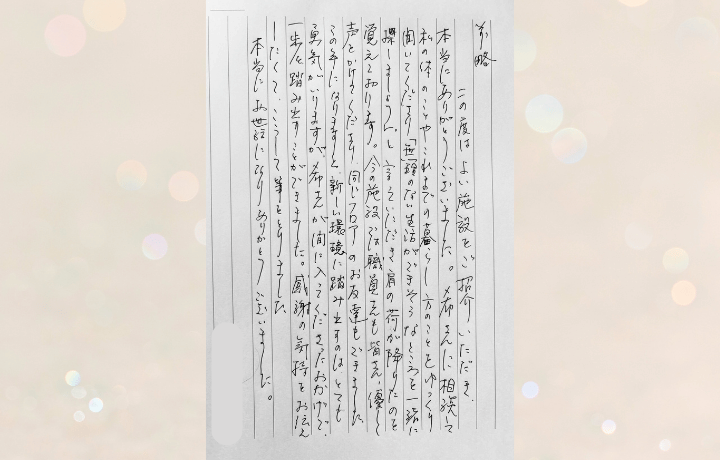 前略
この度はよい施設をご紹介いただき、
本当にありがとうございました。〆布さんに相談して
私の体のことやこれまでの暮らし方のことをゆっくり
聞いてくださり「無理のない生活ができそうなところを一緒に
探しましょう。」と言っていただき肩の荷が降りたのを
覚えております。今の施設では職員さんも皆さん優しく
声をかけてくださり、同じフロアのお友達もできました。
この年になりますと、新しい環境に踏み出すのは、とても
勇気がいりますが、〆布さんが間に入ってくださったおかげで、
一歩を踏み出すことができました。感謝の気持をお伝え
したくて、こうして筆をとりました
本当にお世話になりありがとうございました。